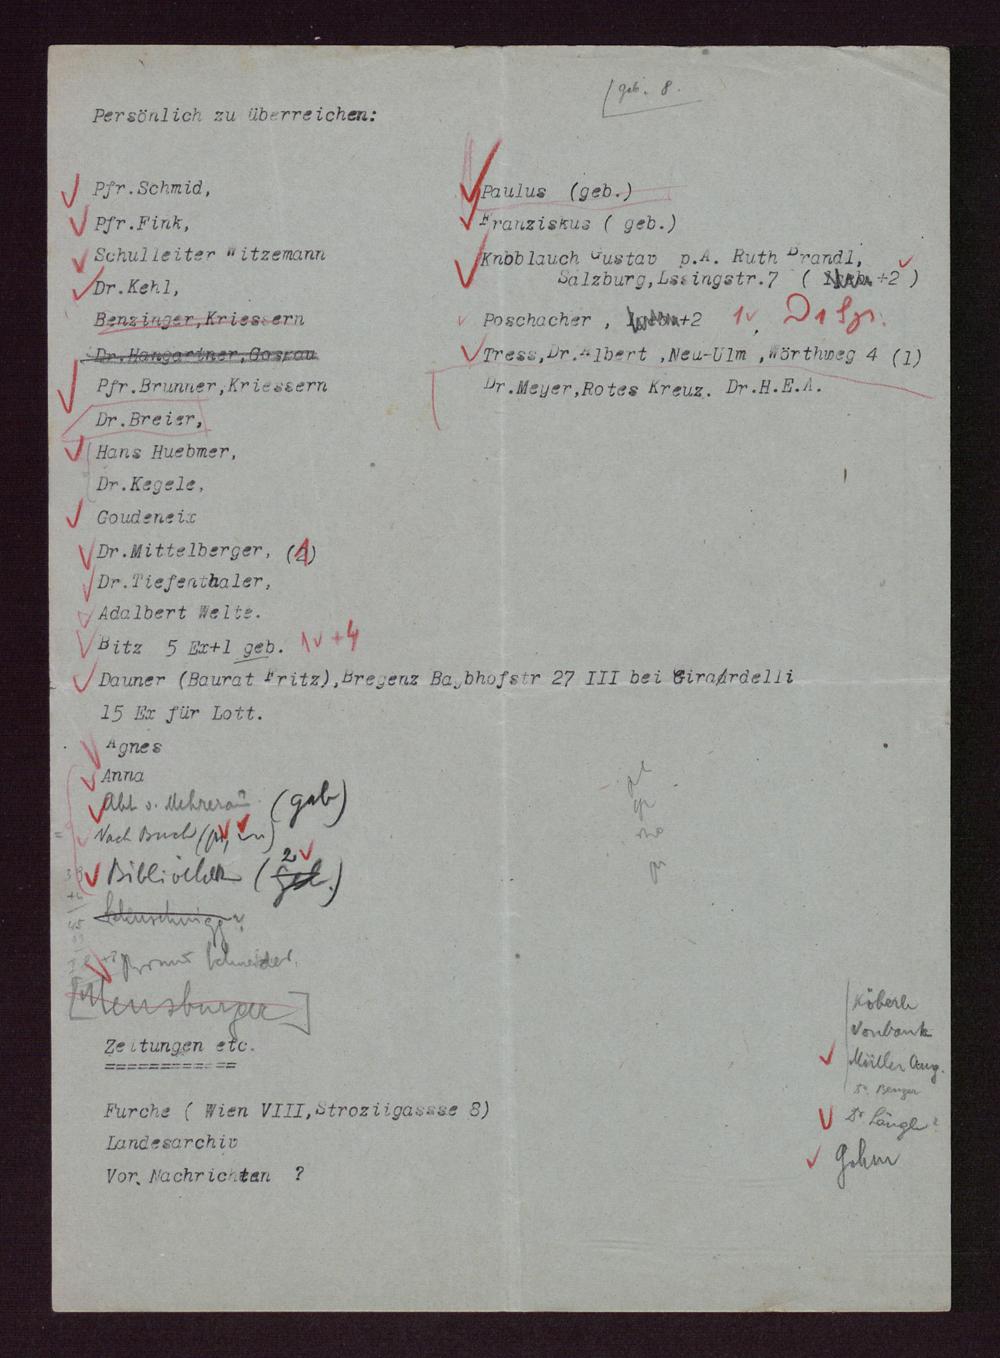 geb. 8.
Persönlich zu überreichen:
Pfr.Schmid,
Pfr.Fink,
Schulleiter Witzemann
Dr.Kehl,
Benzinger,Kriessern
Dr.Hangartner,Gossau
Pfr.Brunner,Kriessern
Dr.Breier,
Hans Huebmer,
Dr.Kegele,
Goudeneix
Dr.Mittelberger, (2)
Dr.Tiefenthaler,
Adalbert Welte.
Bitz 5 Ex+1 geb. 1v +4
Dauner (Baurat Fritz),Bregenz Baybhofstr 27 III bei Girardelli
15 Ex für Lott.
Agnes
Anna
Abt v. Mehrerau (geb)
Nach Buch
Bibliothek (2 geb.)
Schuschnigg?
Schneider.
[Mensburger]
Zeitungen etc.
============
Furche ( Wien VIII,Stroziigassse 8)
Landesarchiv
Vor. Nachrichten ?
Paulus (geb.)
Franziskus ( geb.)
Knbblauch Gustav p.A. Ruth Brandl,
Salzburg,Lssingstr.7 ( +2 )
Poschacher , +2 1v
Tress,Dr.Albert ,Neu-Ulm ,Wörthweg 4 (1)
Dr.Meyer,Rotes Kreuz. Dr.H.E.A.
Köberle
Vonbank
Müller Aug.
Dr. Benzer
Dr Längle?
Gohm